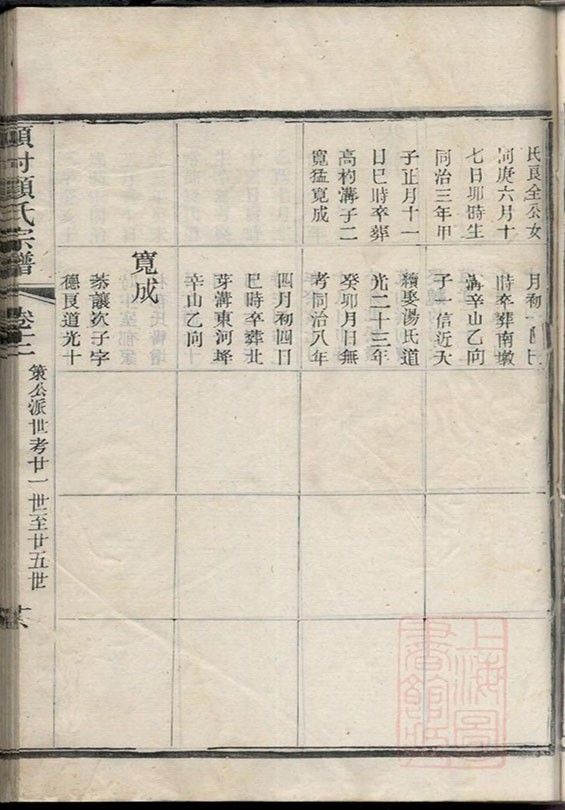 氏良全公女
庚六月十
七日卯時生
同治三年甲
子正月十一
日巳時卒葬
高杓溝子二
寬猛寬成
月初
時卒葬南墩
溝辛山乙向
子一信近大
續娶湯氏道
光二十三年
癸卯月日無
考同治八年
四月初四日
巳時卒葬北
芽溝東河埄
辛山乙向
寬成
恭讓次子字
德良道光十
顧氏宗譜
卷十二
策公派世考廿一世至廿五世
上海圖
書館藏